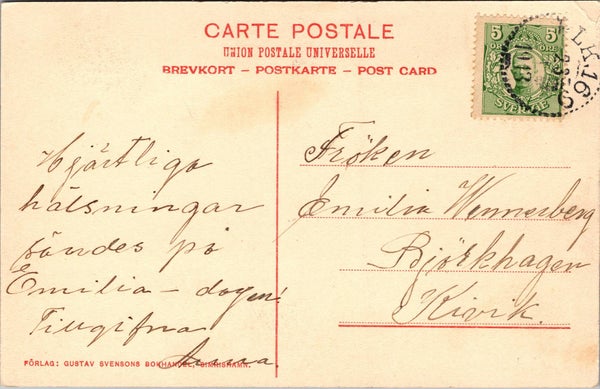 CARTE POSTALE
UNION POSTALE UNIVERSELLE
BREVKORT – POSTKARTE – POST CARD
5 5
ÖRE ÖRE
SVERIGE
LK 16
1913
Hjärtliga
hälsningar
sändes på
Emilia – dagen!
Tillgifna
Anna.
Fröken
Emilia Wennerberg
Björkhagen
Kivik.
FÖRLAG: GUSTAV SVENSONS BOKHANDEL, SIMRISHAMN.